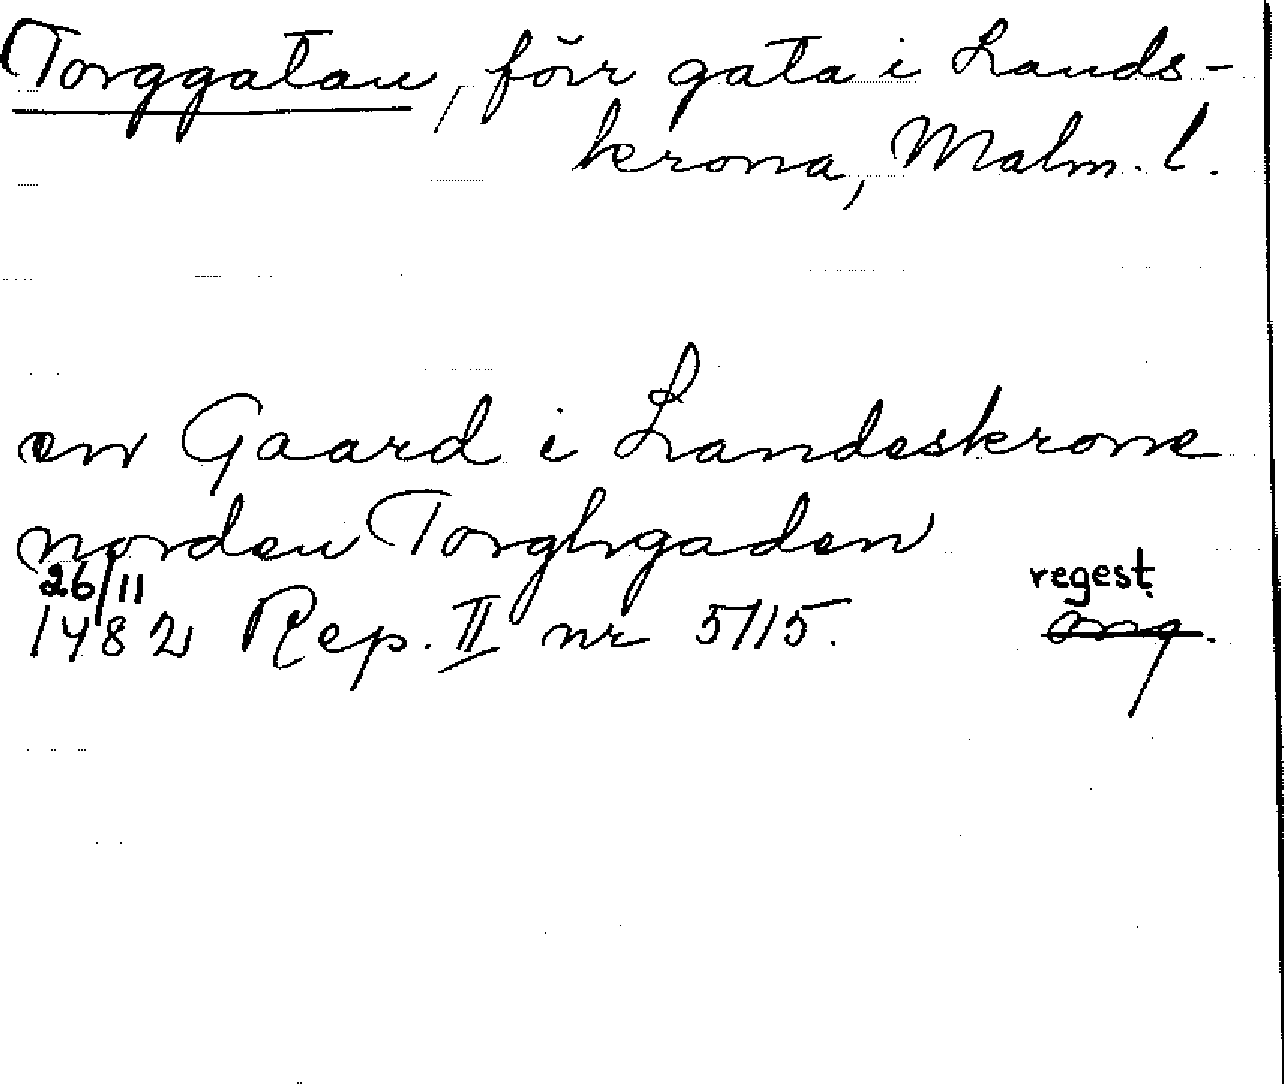 Torggatan, förr gata i Lands-
krona, Malm. l.
en Gaard i Landeskrone
norden Torghgaden
26/11
1482 Rep. II nr 5715.
regest.
orig.